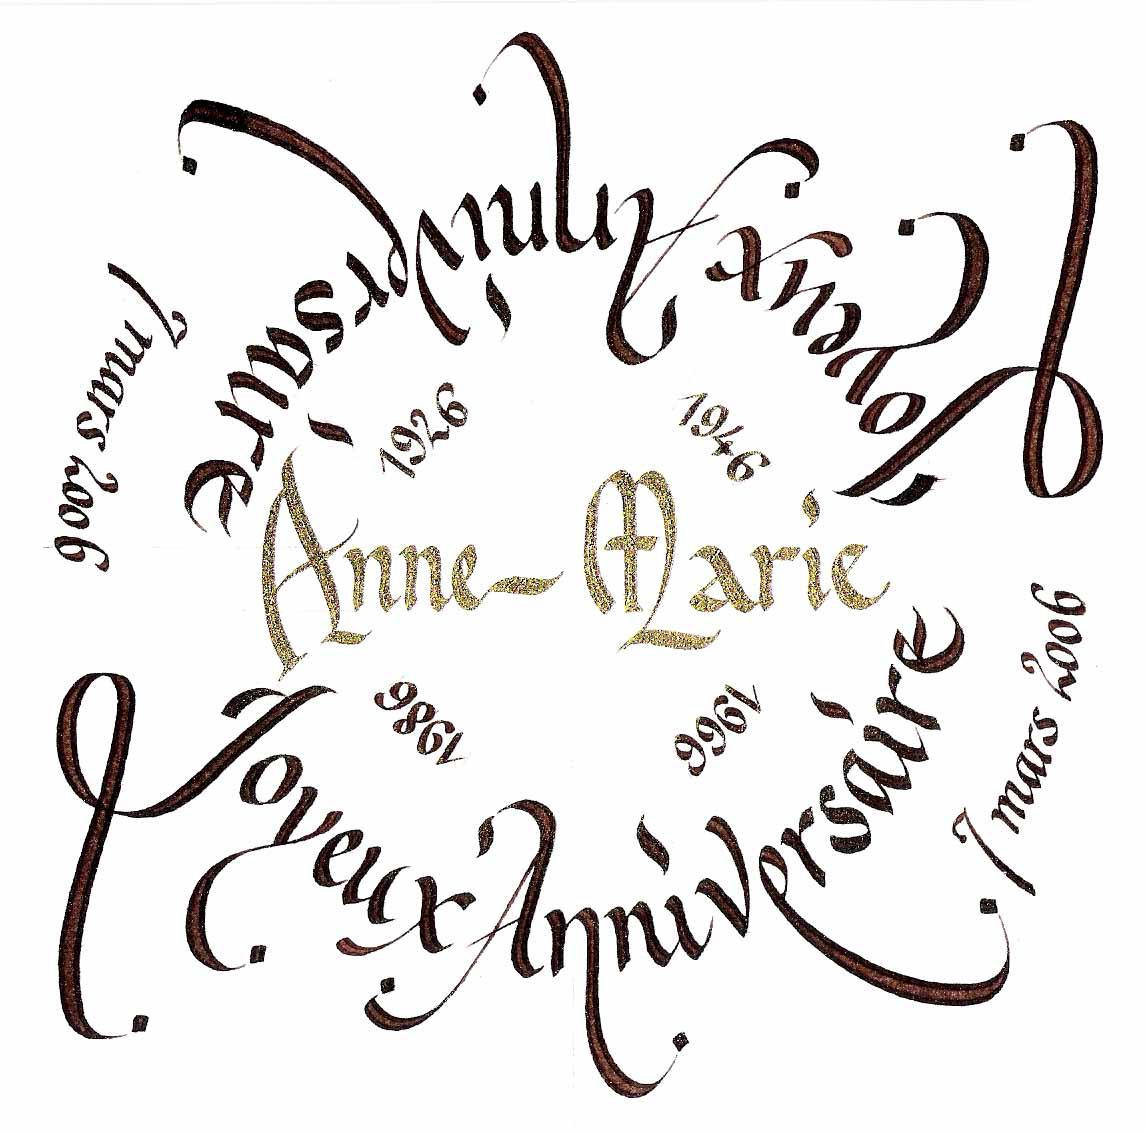 Joyeux Anniversaire
7 mars 2006
1926
1946
Anne-Marie
1986
1966
7 mars 2006
Joyeux Anniversaire